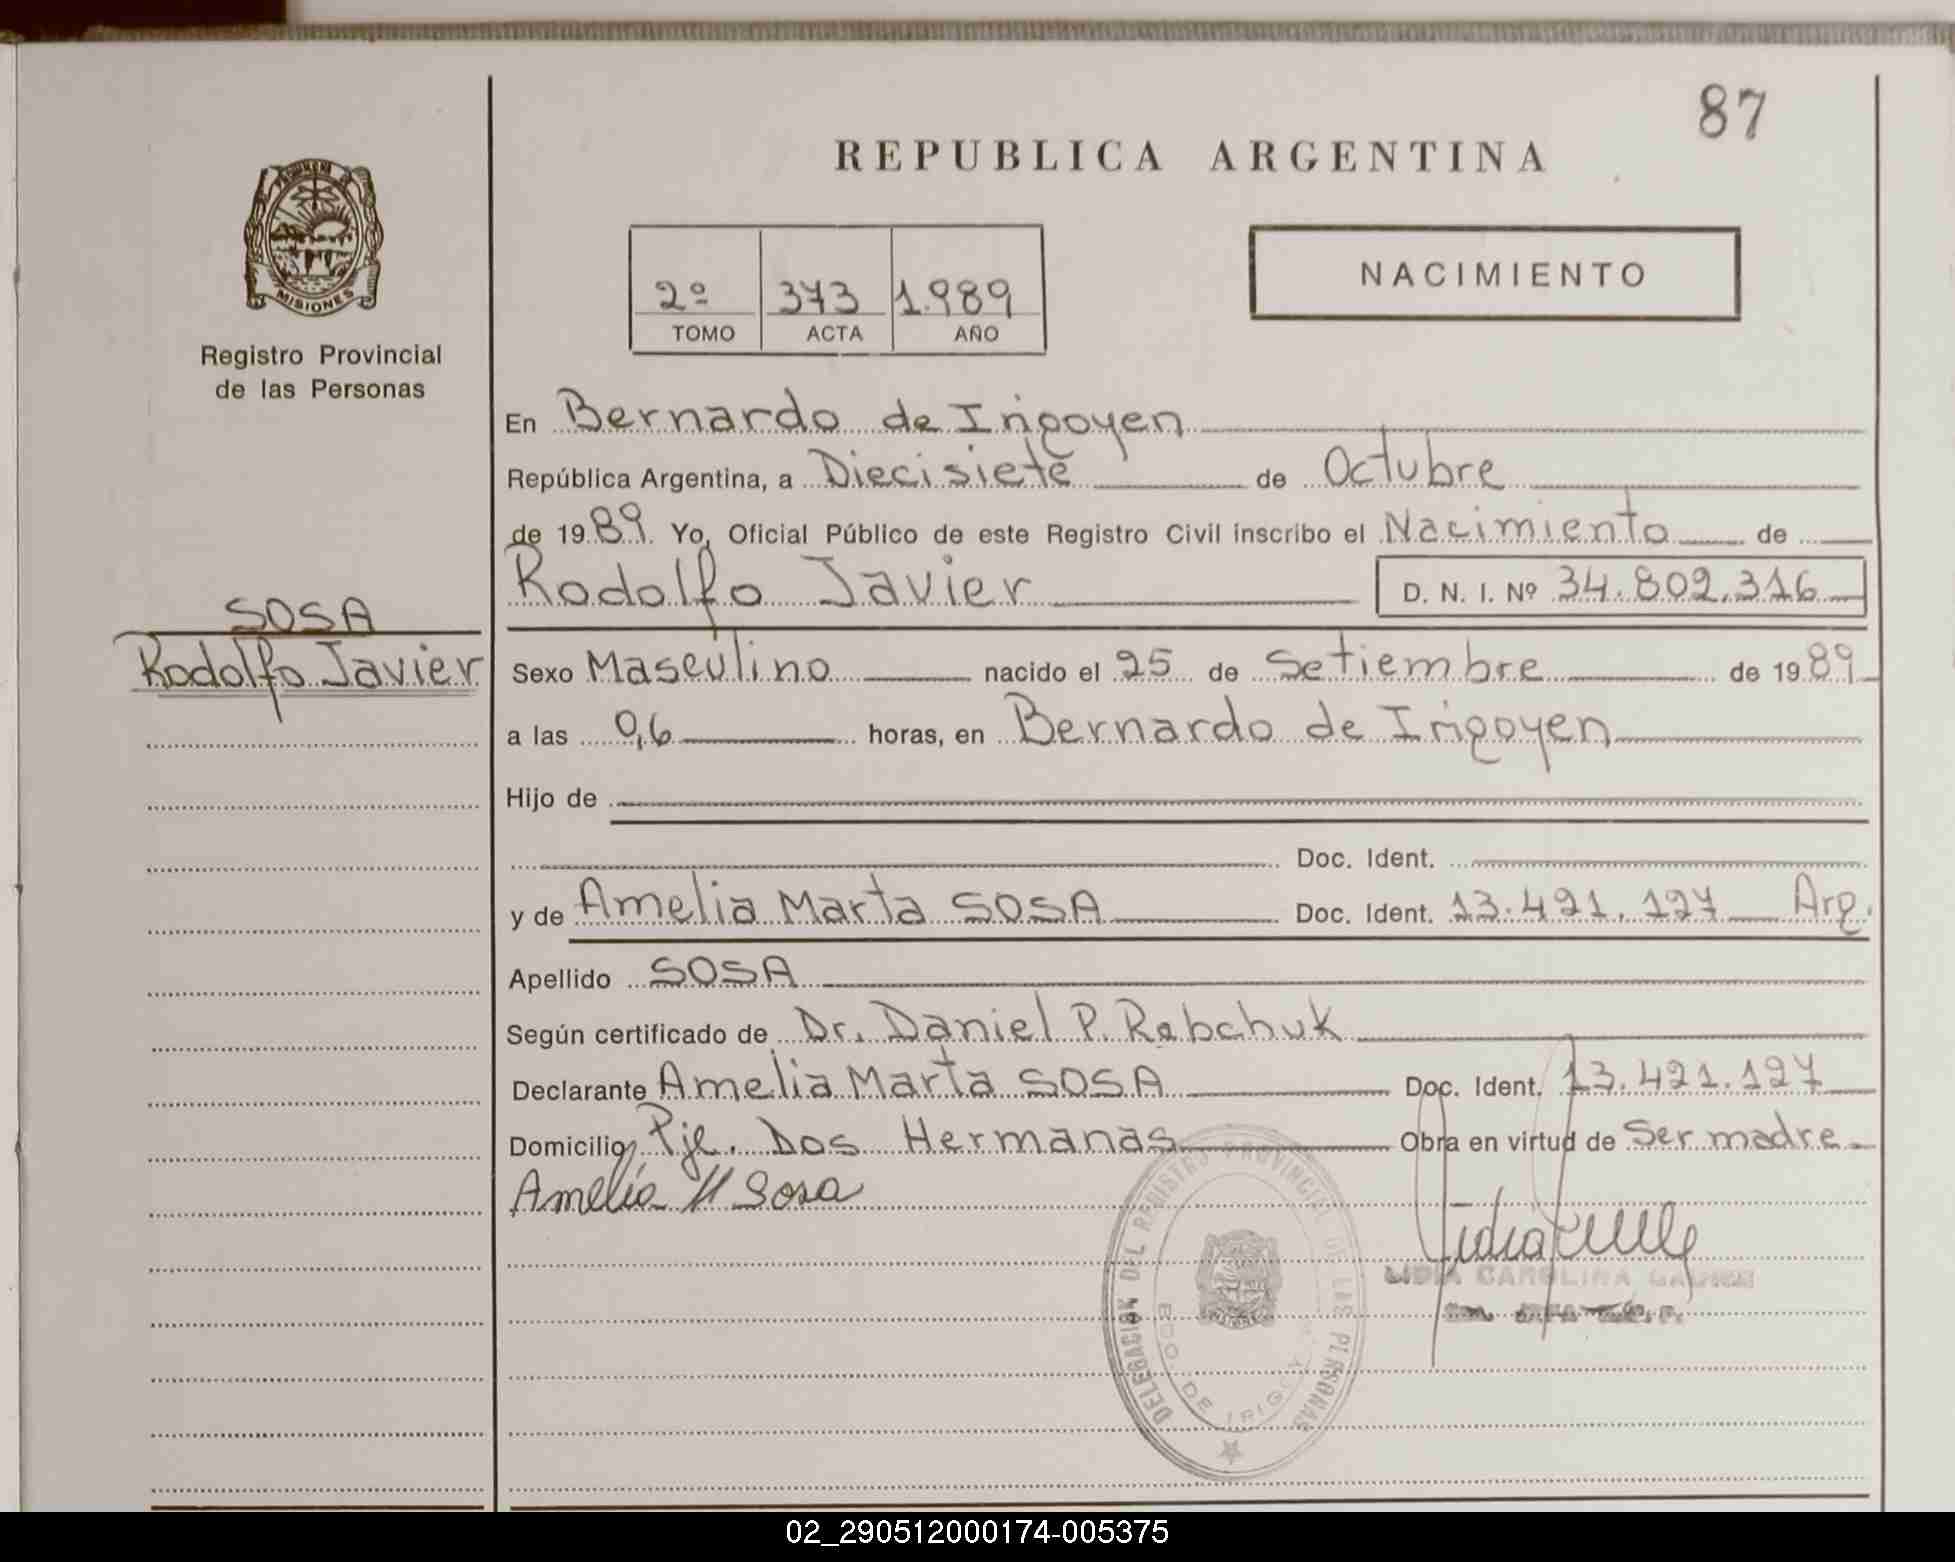 87
REPUBLICA ARGENTINA
2º 373 1.989
TOMO ACTA AÑO
NACIMIENTO
MISIONES
Registro Provincial
de las Personas
SOSA
Rodolfo Javier
En Bernardo de Irigoyen
República Argentina, a Diecisiete de Octubre
de 1989. Yo, Oficial Público de este Registro Civil inscribo el Nacimiento de
Rodolfo Javier D. N. I. Nº 34.802.316
Sexo Masculino nacido el 25 de Setiembre de 1989
a las 0,6 horas, en Bernardo de Irigoyen
Hijo de
Doc. Ident.
y de Amelia Marta SOSA Doc. Ident. 13.421.127 Arg.
Apellido SOSA
Según certificado de Dr. Daniel P. Rabchuk
Declarante Amelia Marta SOSA Doc. Ident. 13.421.127
Domicilio Pje. Dos Hermanas Obra en virtud de Ser madre
Amelia M Sosa
LIDIA CAROLINA
DELEGACION DEL REGISTRO PROVINCIAL DE LAS PERSONAS
BDO. DE IRIGOYEN
02_290512000174-005375